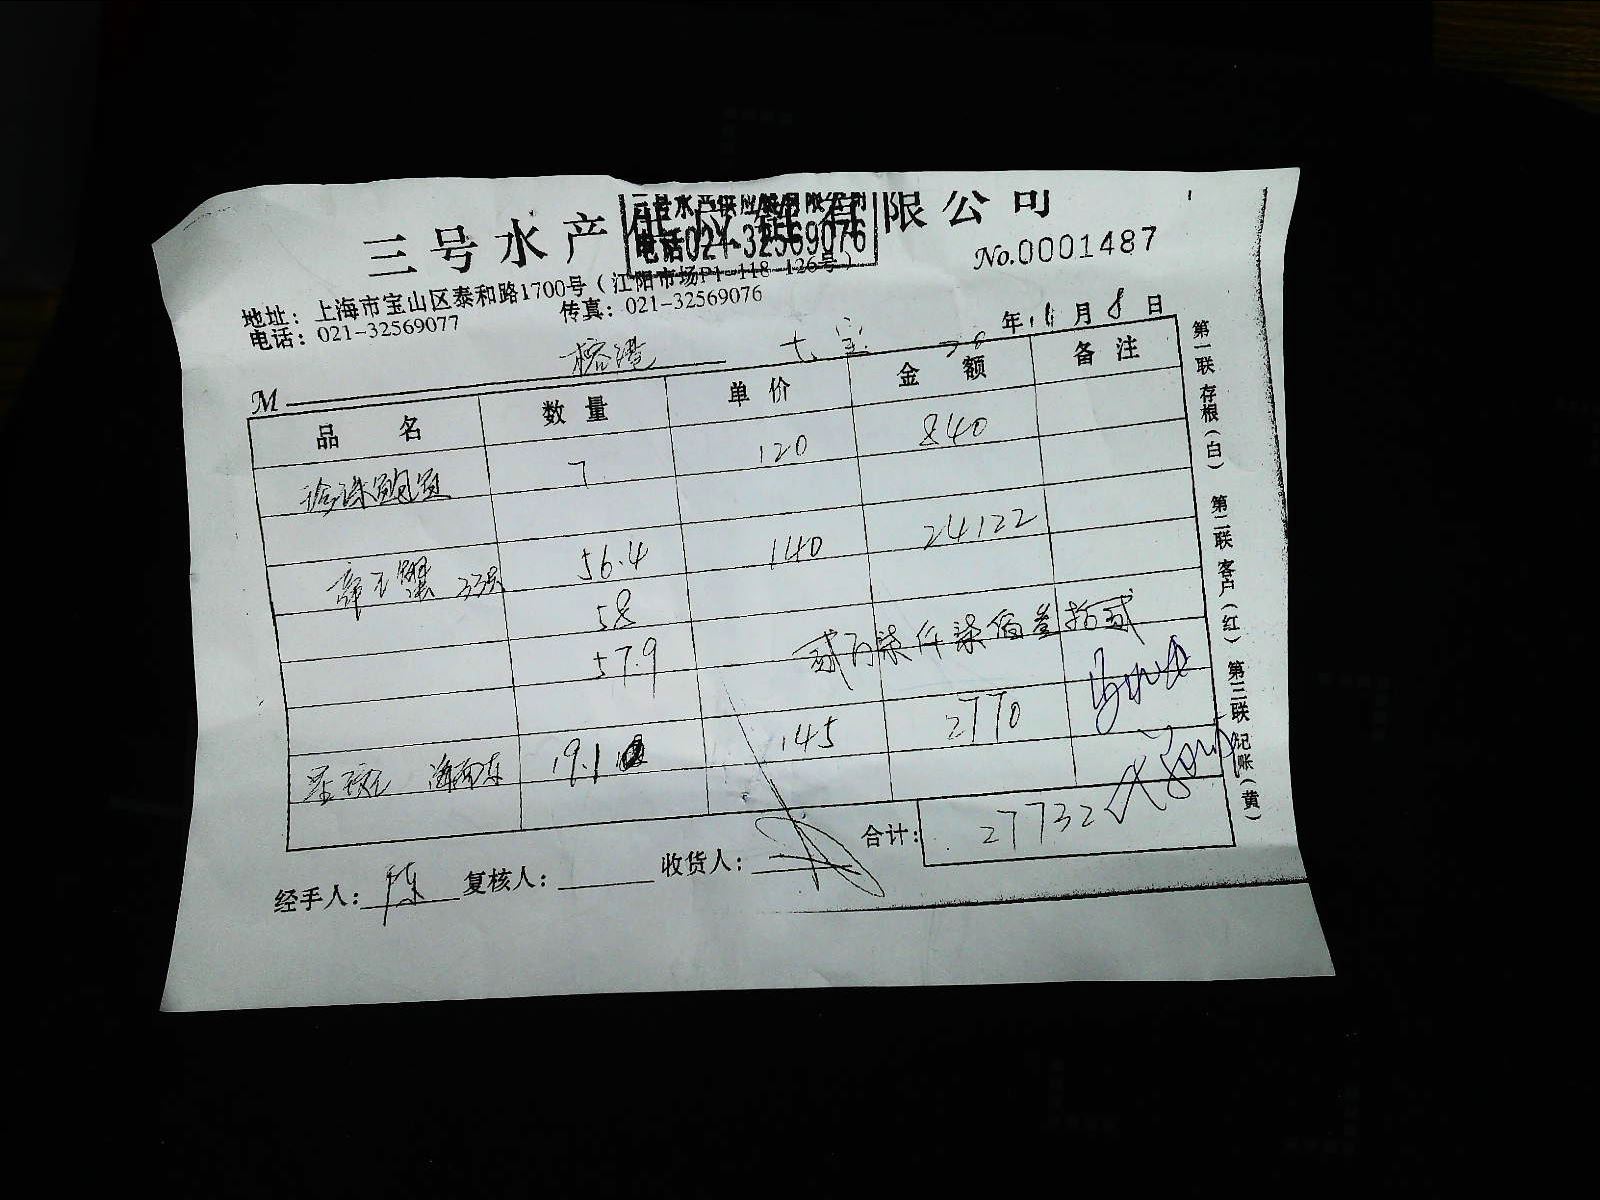 三号水产供应链有限公司
三号水产供应链有限公司
电话021-32569076
No.0001487
地址：上海市宝山区泰和路1700号（江阳市场P1-118-126号）
电话：021-32569077 传真：021-32569076
年 11 月 8 日
M 榕港
品名 数量 单价 金额 备注
7 120 840
帝王蟹 33只 56.4 140 24122
58
57.9
贰万柒仟柒佰叁拾贰
19.1 145 2770
合计： 27732
经手人：陈 复核人： 收货人：
第一联 存根（白） 第二联 客户（红） 第三联 记账（黄）